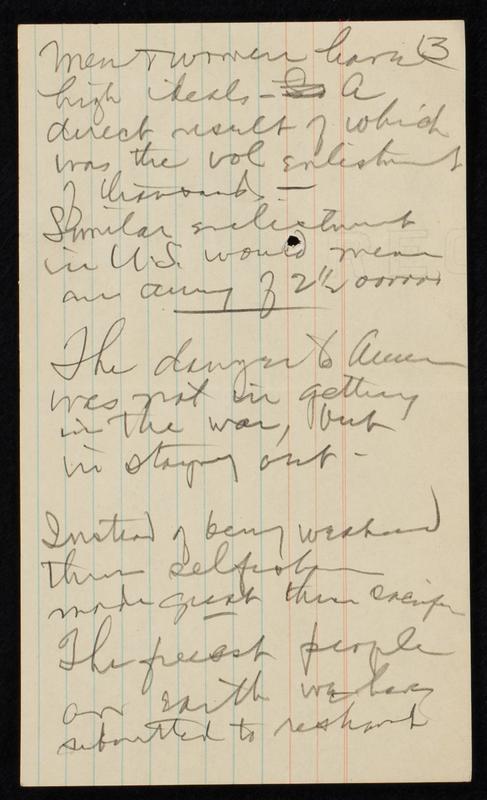 13
men & women have
high ideals - A
direct result of which
was the vol enlistment
of thousands. —
Similar enlistment
in U.S. would mean
an army of 2½ 000000
The danger to Amer
was not in getting
in the war, but
in staying out -
Instead of being weakened
thru
made great thru sacrifice
The freest people
on earth we have
submitted to restraint